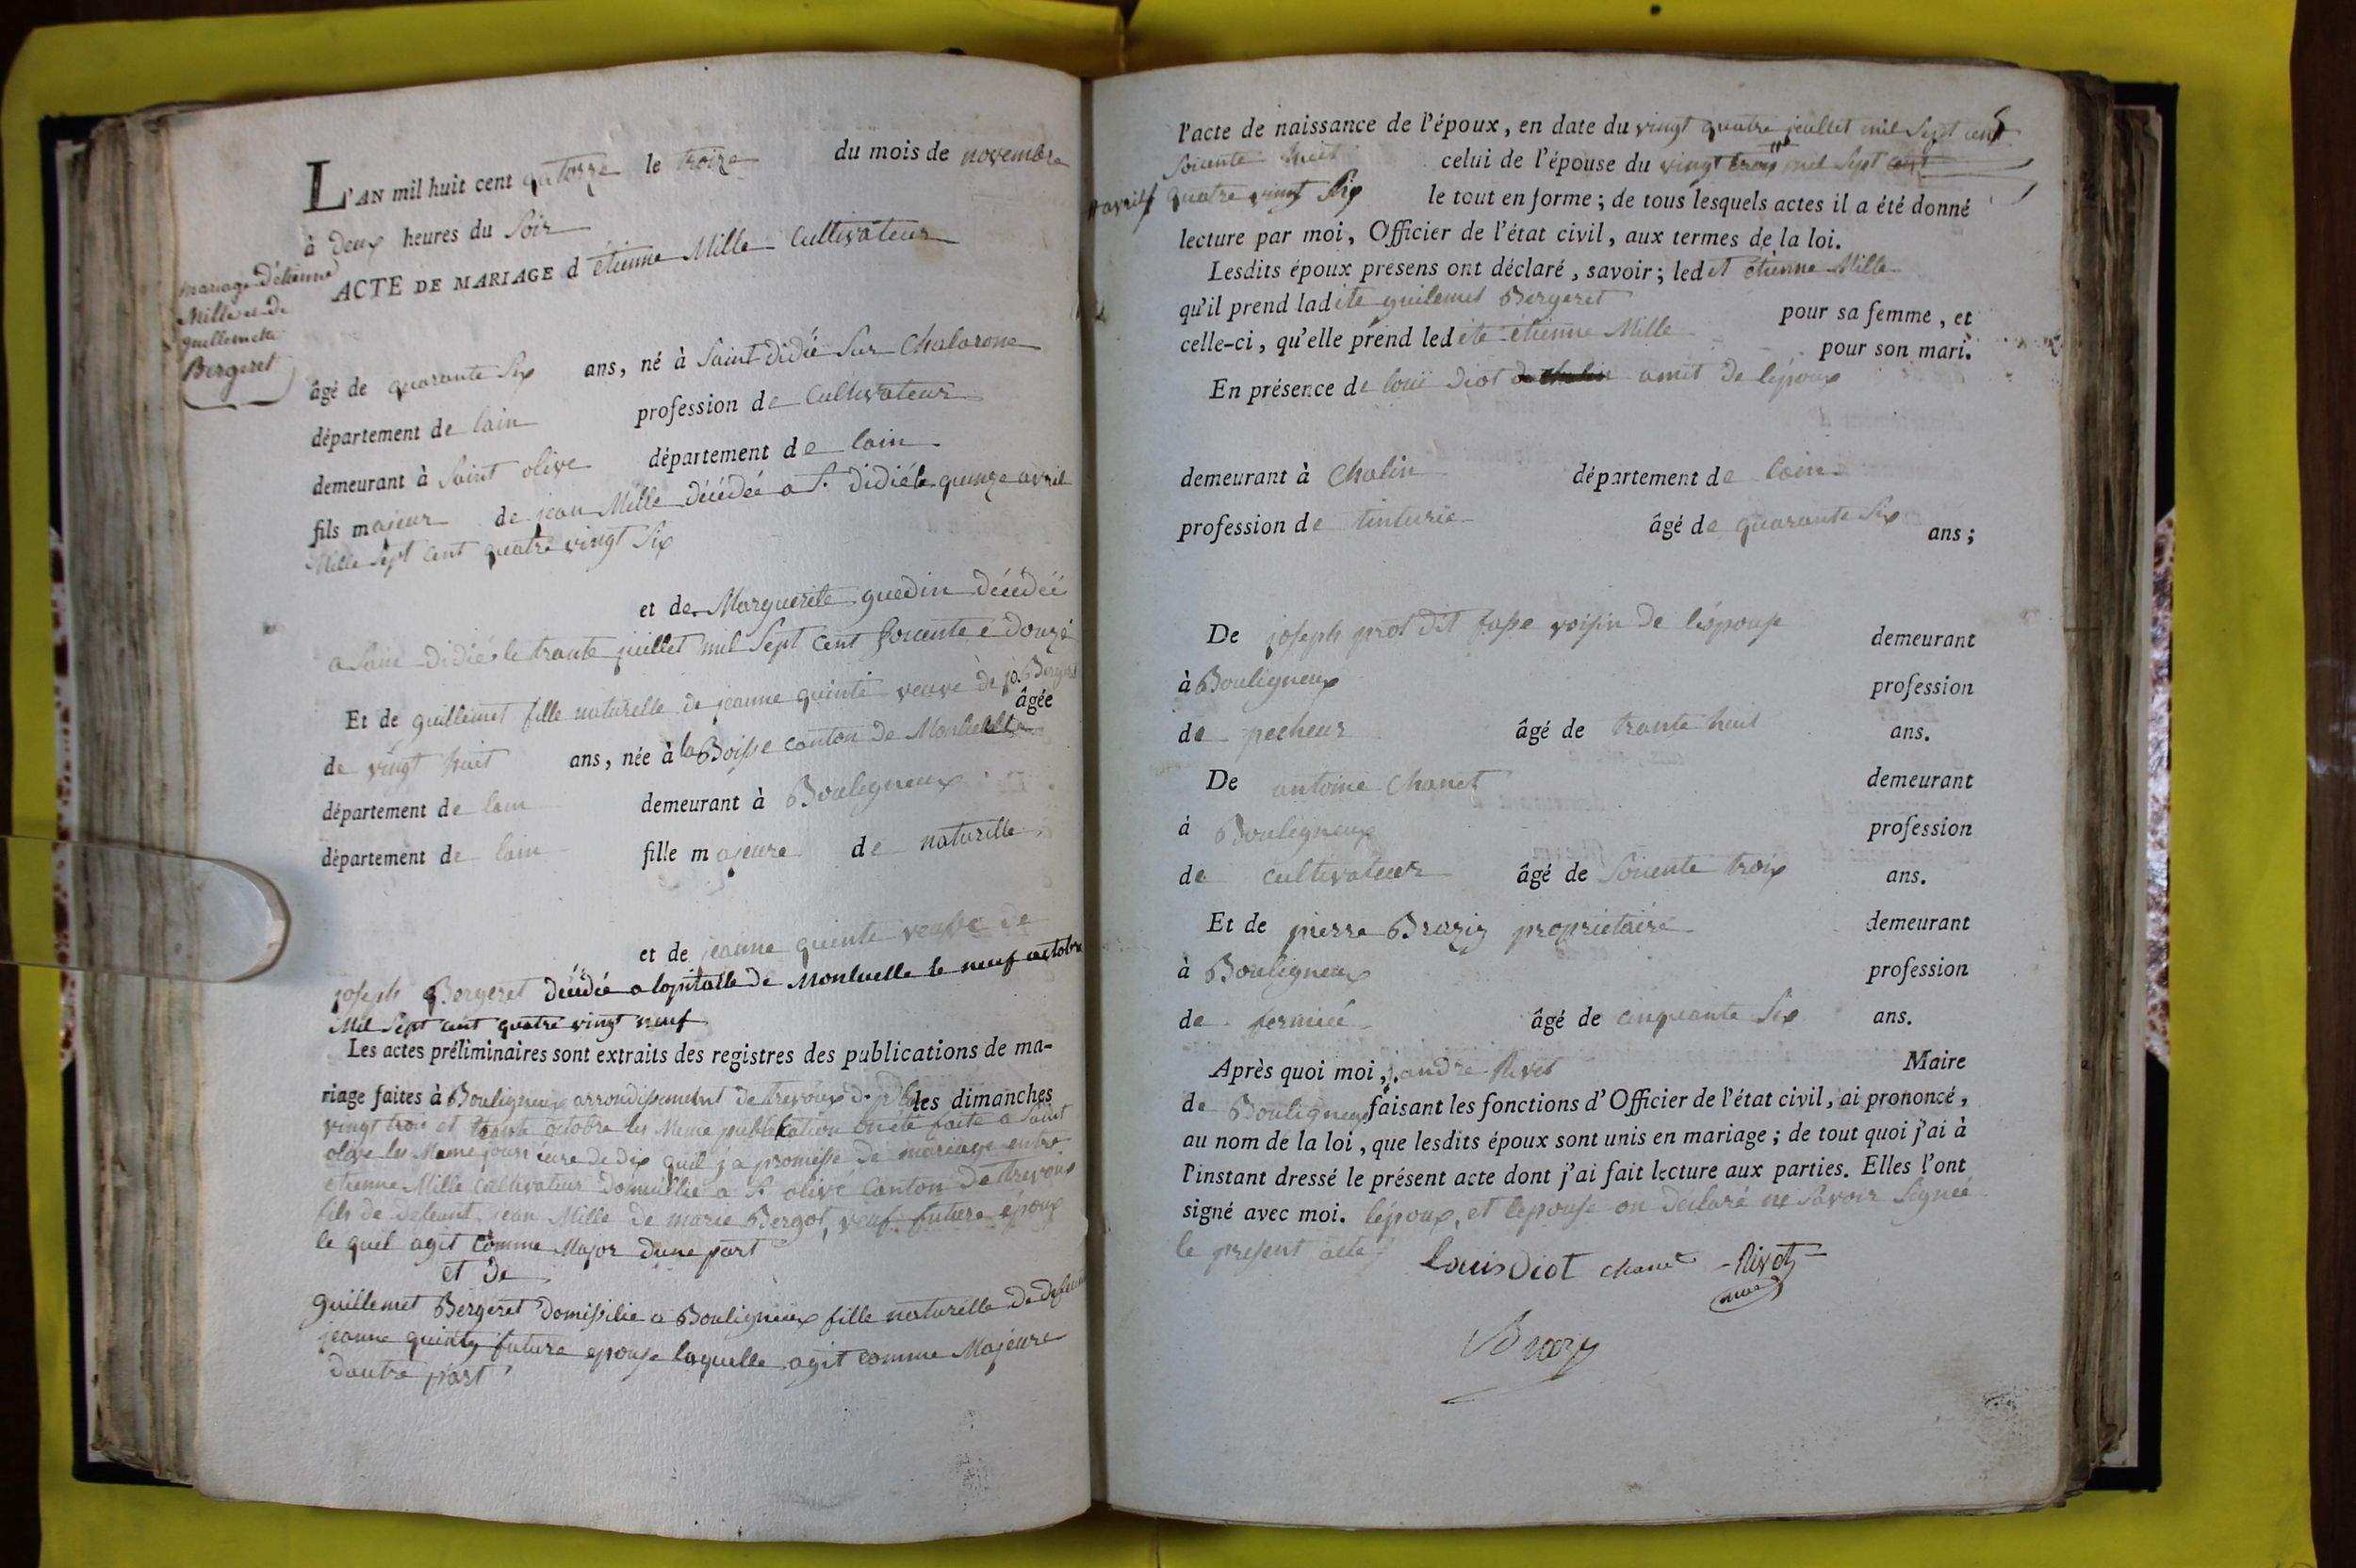 L'AN mil huit cent quatorze le troize du mois de novembre
à deux heures du Soir
mariage d'étienne
Mille et de
guillemette
Bergeret
ACTE DE MARIAGE d étienne Mille Cultivateur
âgé de quarante Six ans, né à Saint didié Sur Chalarone
département de lain profession de Cultivateur
demeurant à Saint olive département de lain
fils majeur de jean Mille décédée a St didié le quinze avril
Mille Sept cent quatre vingt Six
et de Marguerite guedin décédée
a Sain didié le trante juillet mil Sept Cent Soicente e douze
Et de guillemet fille naturelle de jeanne quinte veuve de jo. Bergeret
âgée
de vingt huit ans, née à la Boisse canton de Monluelle
département de lain demeurant à Bouligneux
département de lain fille majeure de naturelle
et de jeanne quinte veufve de
joseph Bergeret décédée a lopitalle de Monluelle le neuf octobre
Mil Sept cent quatre vingt neuf
Les actes préliminaires sont extraits des registres des publications de ma-
riage faites à Bouligneux arrondissement de trevoux les dimanches
vingt trois et trante octobre les Meme publication on été faite a Saint
olive les Meme jours eure de dix quil j a promesse de mariage entre
étienne Mille Cultivateur domicillié a St olive Canton de trevoux
fils de defeunt jean Mille de marie Bergot, veuf future époux
le quel agit comme Major dune part
et de
guillemet Bergeret domisilie a Bouligneux fille naturelle de defeunt
jeanne quinty future epouse laquelle agit comme Majeure
dautre part
l'acte de naissance de l'époux, en date du vingt quatre juillet mil Sept cent
Soicente huit celui de l'épouse du vingt trois mil Sept cent
avril quatre vingt Six le tout en forme ; de tous lesquels actes il a été donné
lecture par moi, Officier de l'état civil, aux termes de la loi.
Lesdits époux présens ont déclaré, savoir ; ledet étienne Mille
qu'il prend ladite guilemet Bergeret pour sa femme, et
celle-ci, qu'elle prend ledite étienne Mille pour son mari.
En présence de loui diot amit de lépoux
demeurant à Chalin département de lain
profession de tinturie âgé de quarante Six ans ;
De joseph prot dit fasse voisin de lépouse demeurant
à Bouligneux profession
de pecheur âgé de trante huit ans.
De antoine Chanet demeurant
à Bouligneux profession
de cultivateur âgé de Soicente trois ans.
Et de pierre Brazy propriétaire demeurant
à Bouligneux profession
de fermiée âgé de cinquante Six ans.
Après quoi moi, j. andre Rivet Maire
de Bouligneux faisant les fonctions d'Officier de l'état civil, ai prononcé,
au nom de la loi, que lesdits époux sont unis en mariage ; de tout quoi j'ai à
l'instant dressé le présent acte dont j'ai fait lecture aux parties. Elles l'ont
signé avec moi. lépoux, et lepouse on déclaré ne Savoir Signée
le present acte
Louis Diot Chanet Rivet
maire
Brazy